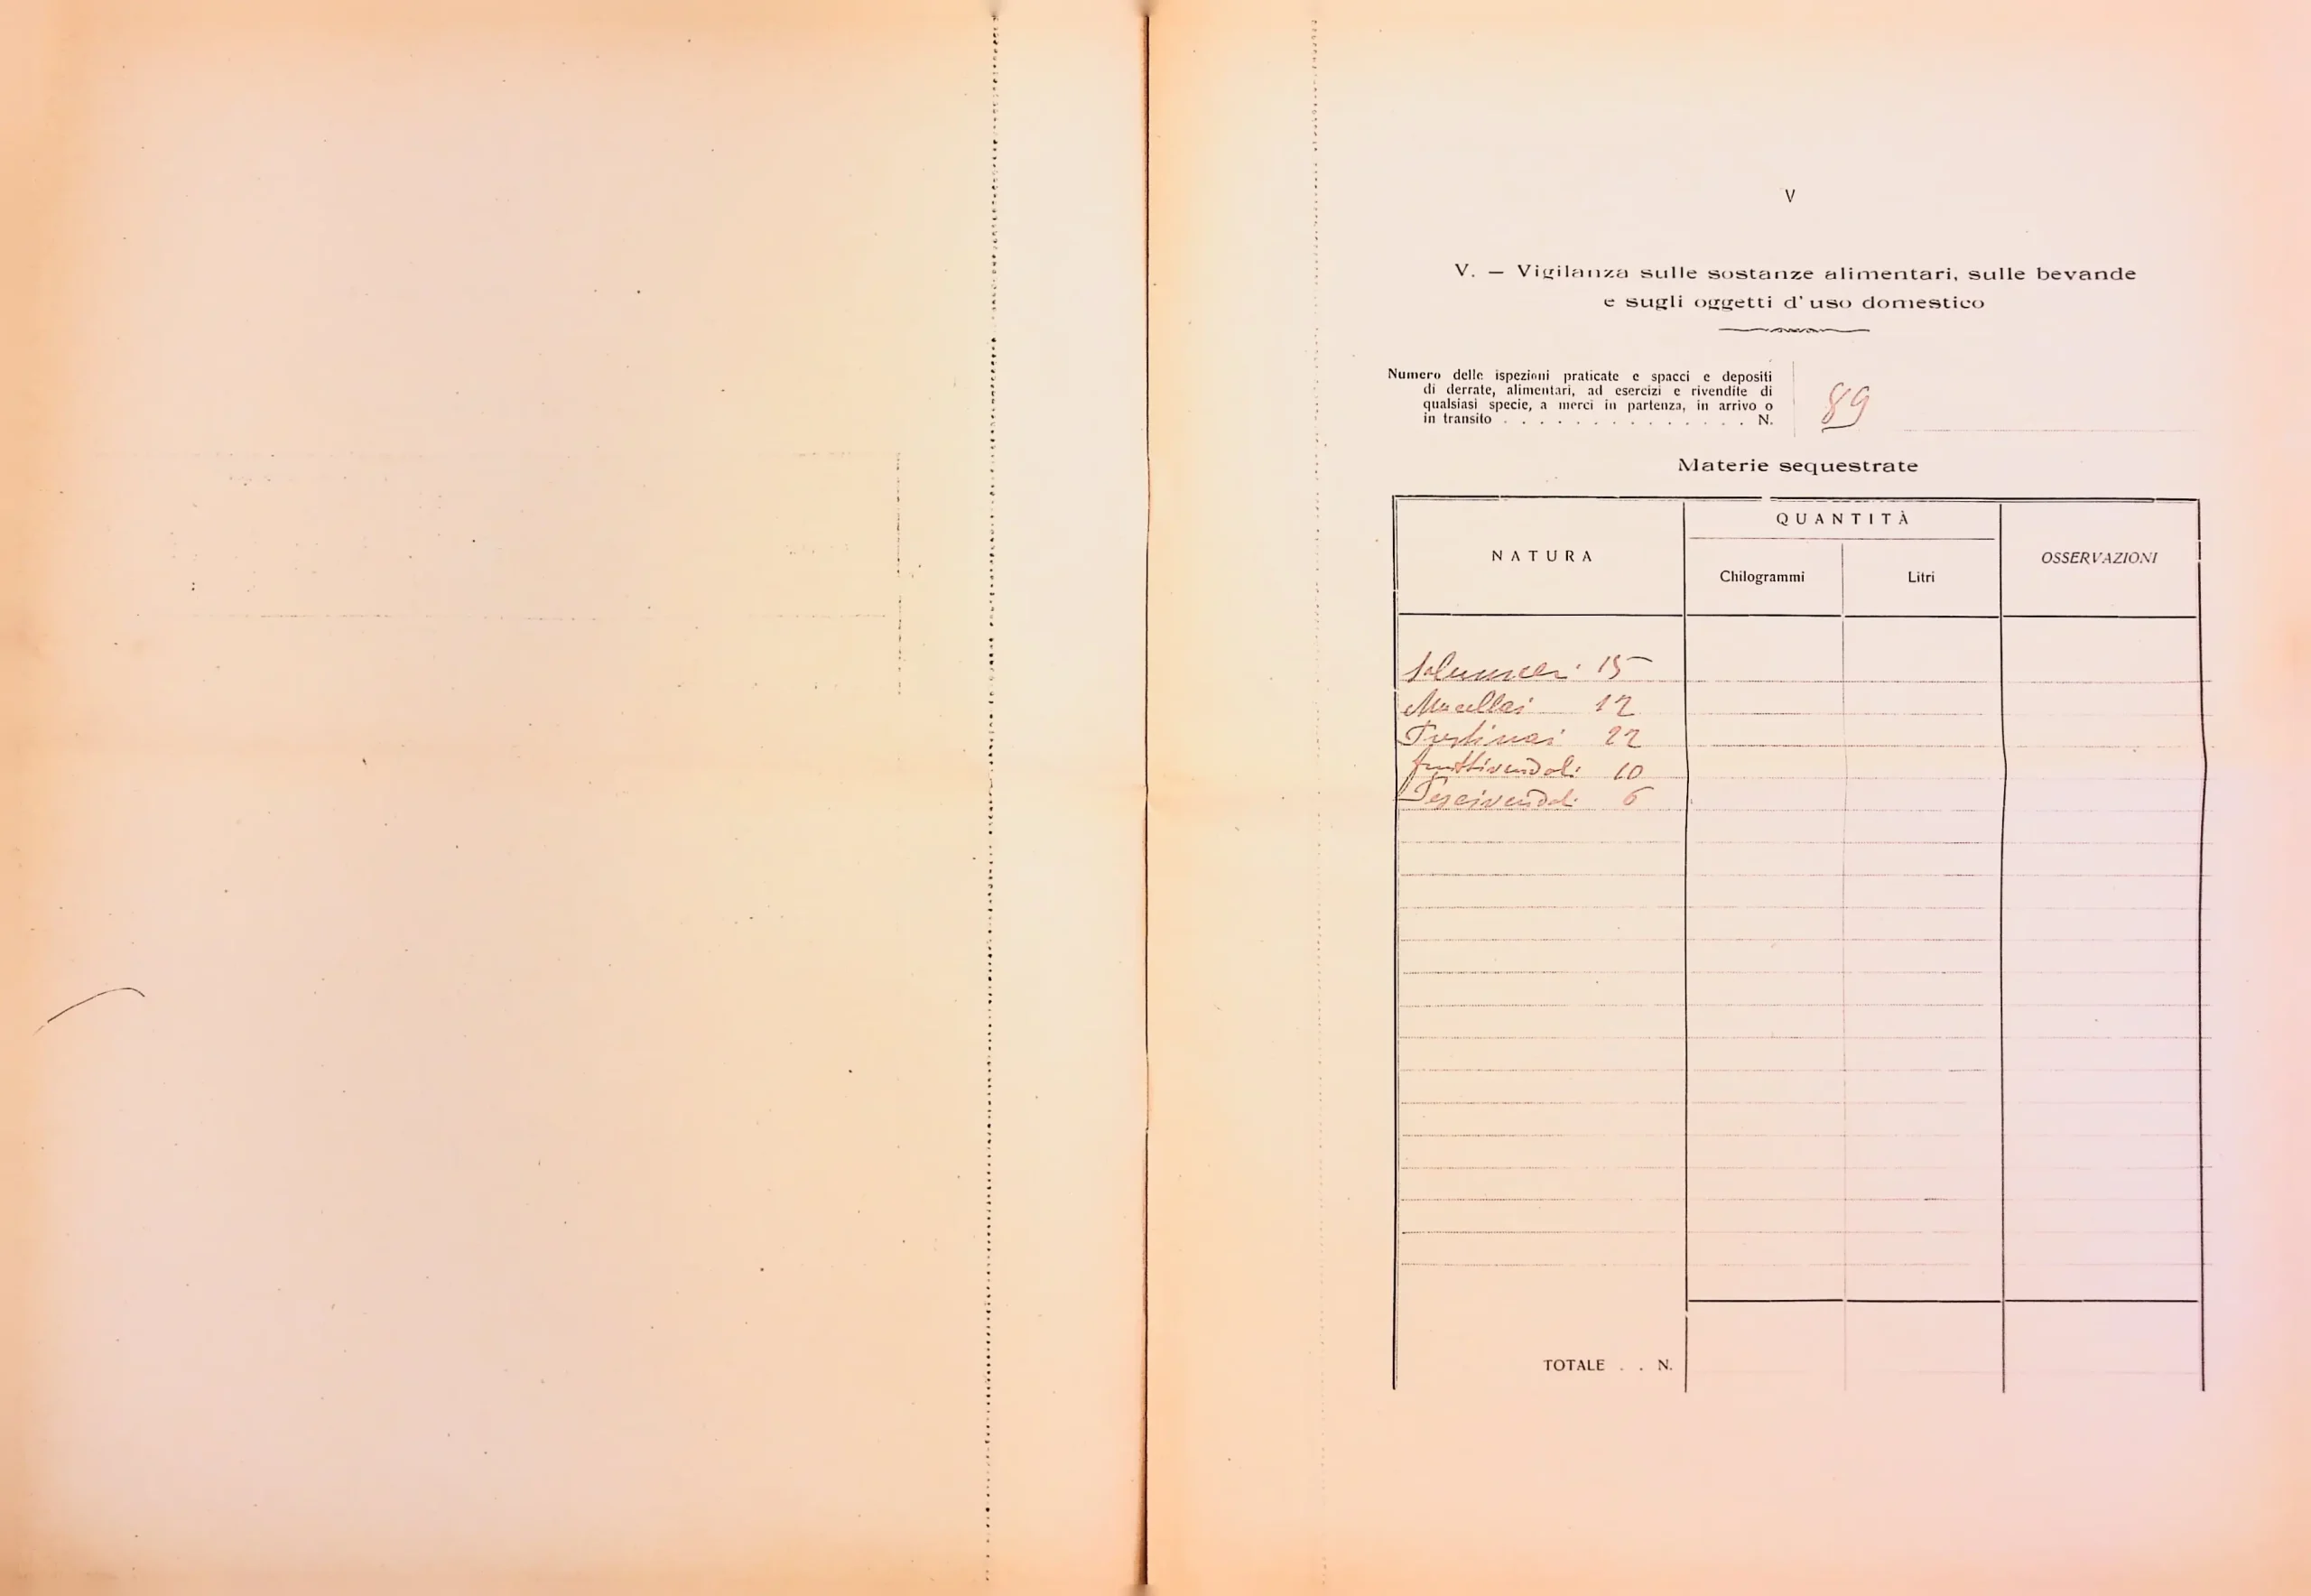 V
V. — Vigilanza sulle sostanze alimentari, sulle bevande
e sugli oggetti d' uso domestico
Numero delle ispezioni praticate e spacci e depositi
di derrate, alimentari, ad esercizi e rivendite di
qualsiasi specie, a merci in partenza, in arrivo o
in transito . . . . . . . . . . . . . . N.
89
Materie sequestrate
NATURA
QUANTITÀ
Chilogrammi
Litri
OSSERVAZIONI
Salumieri 15
Macellai 12
22
fruttivendoli 10
Pescivendoli 6
TOTALE . . N.